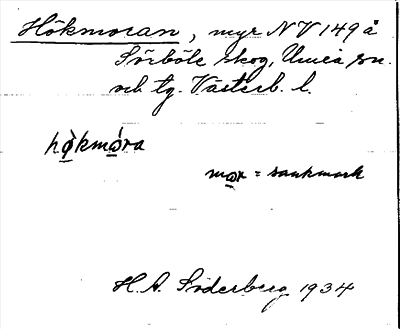 Hökmoran, myr NV 149 å
Sörböle skog, Umeå sn.
och tg. Västerb. l.
hö̀kmóra
mor = sankmark
H. A. Söderberg 1934